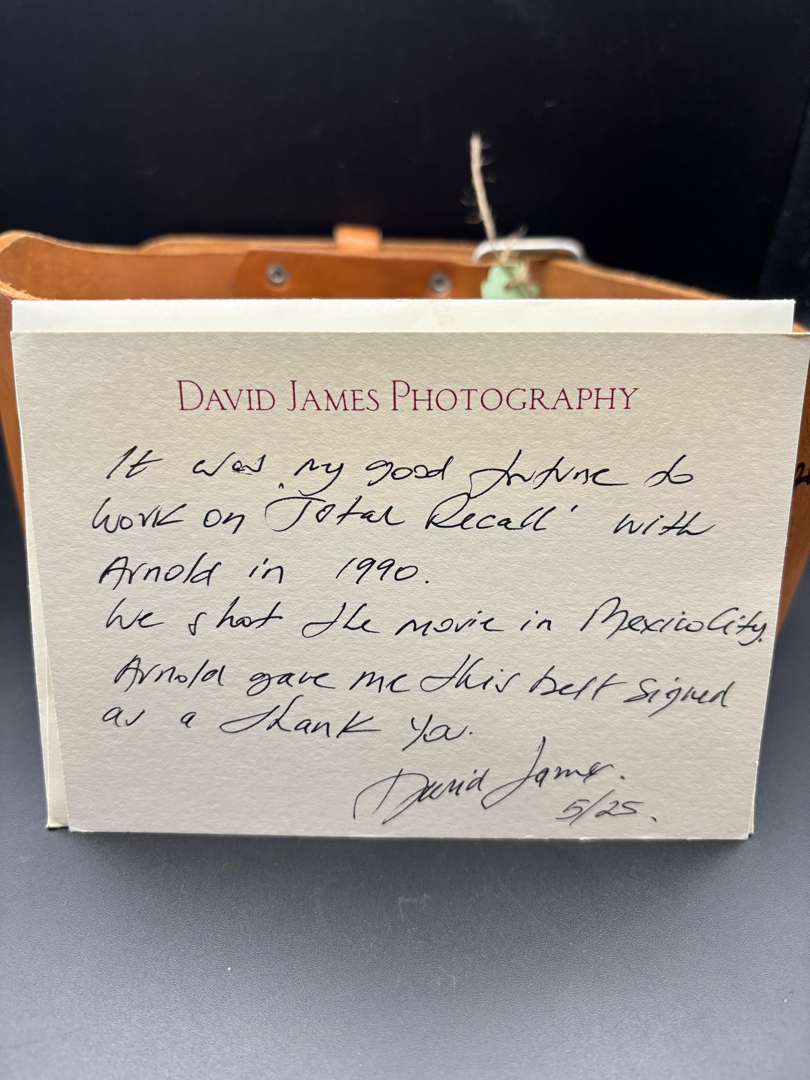 DAVID JAMES PHOTOGRAPHY
It was my good fortune to
work on 'Total Recall' with
Arnold in 1990.
We shot the movie in Mexico City.
Arnold gave me this belt signed
as a thank you.
David James.
5/25.